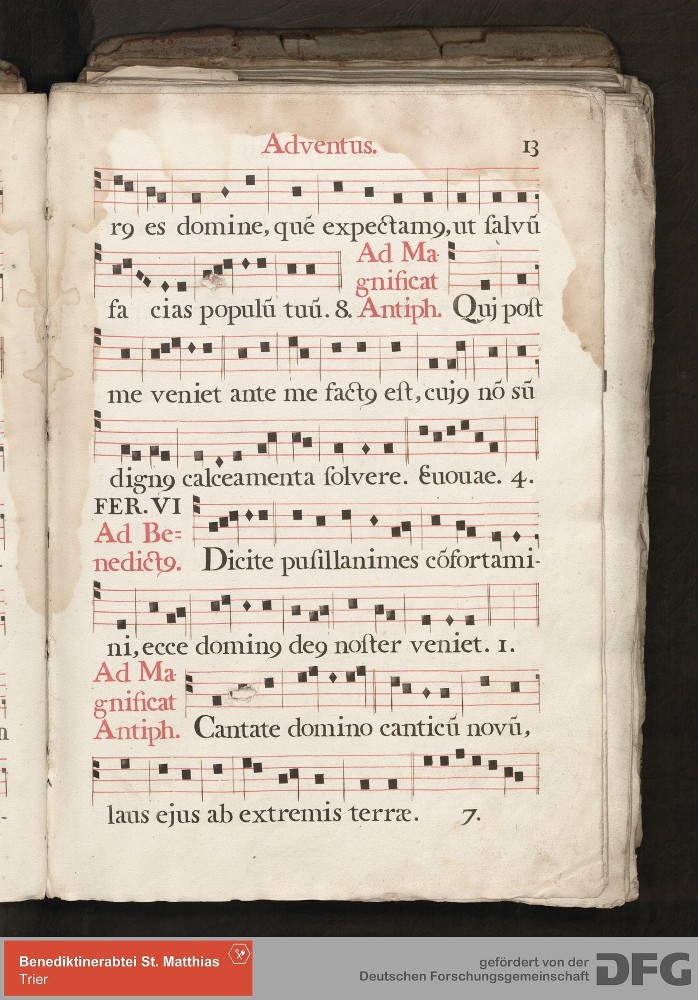 Adventus. 13
r9 es domine, quē expectam9, ut ſalvū
fa cias populū tuū. 8. Ad Ma-
gnificat
Antiph. Quj poſt
me veniet ante me fact9 eſt, cuj9 nō sū
dign9 calceamenta ſolvere. Euouae. 4.
FER. VI
Ad Be=
nedict9. Dicite puſillanimes cōfortami-
ni, ecce domin9 de9 noſter veniet. 1.
Ad Ma-
gnificat
Antiph. Cantate domino canticū novū,
laus ejus ab extremis terræ. 7.
Benediktinerabtei St. Matthias
Trier
gefördert von der
Deutschen Forschungsgemeinschaft DFG